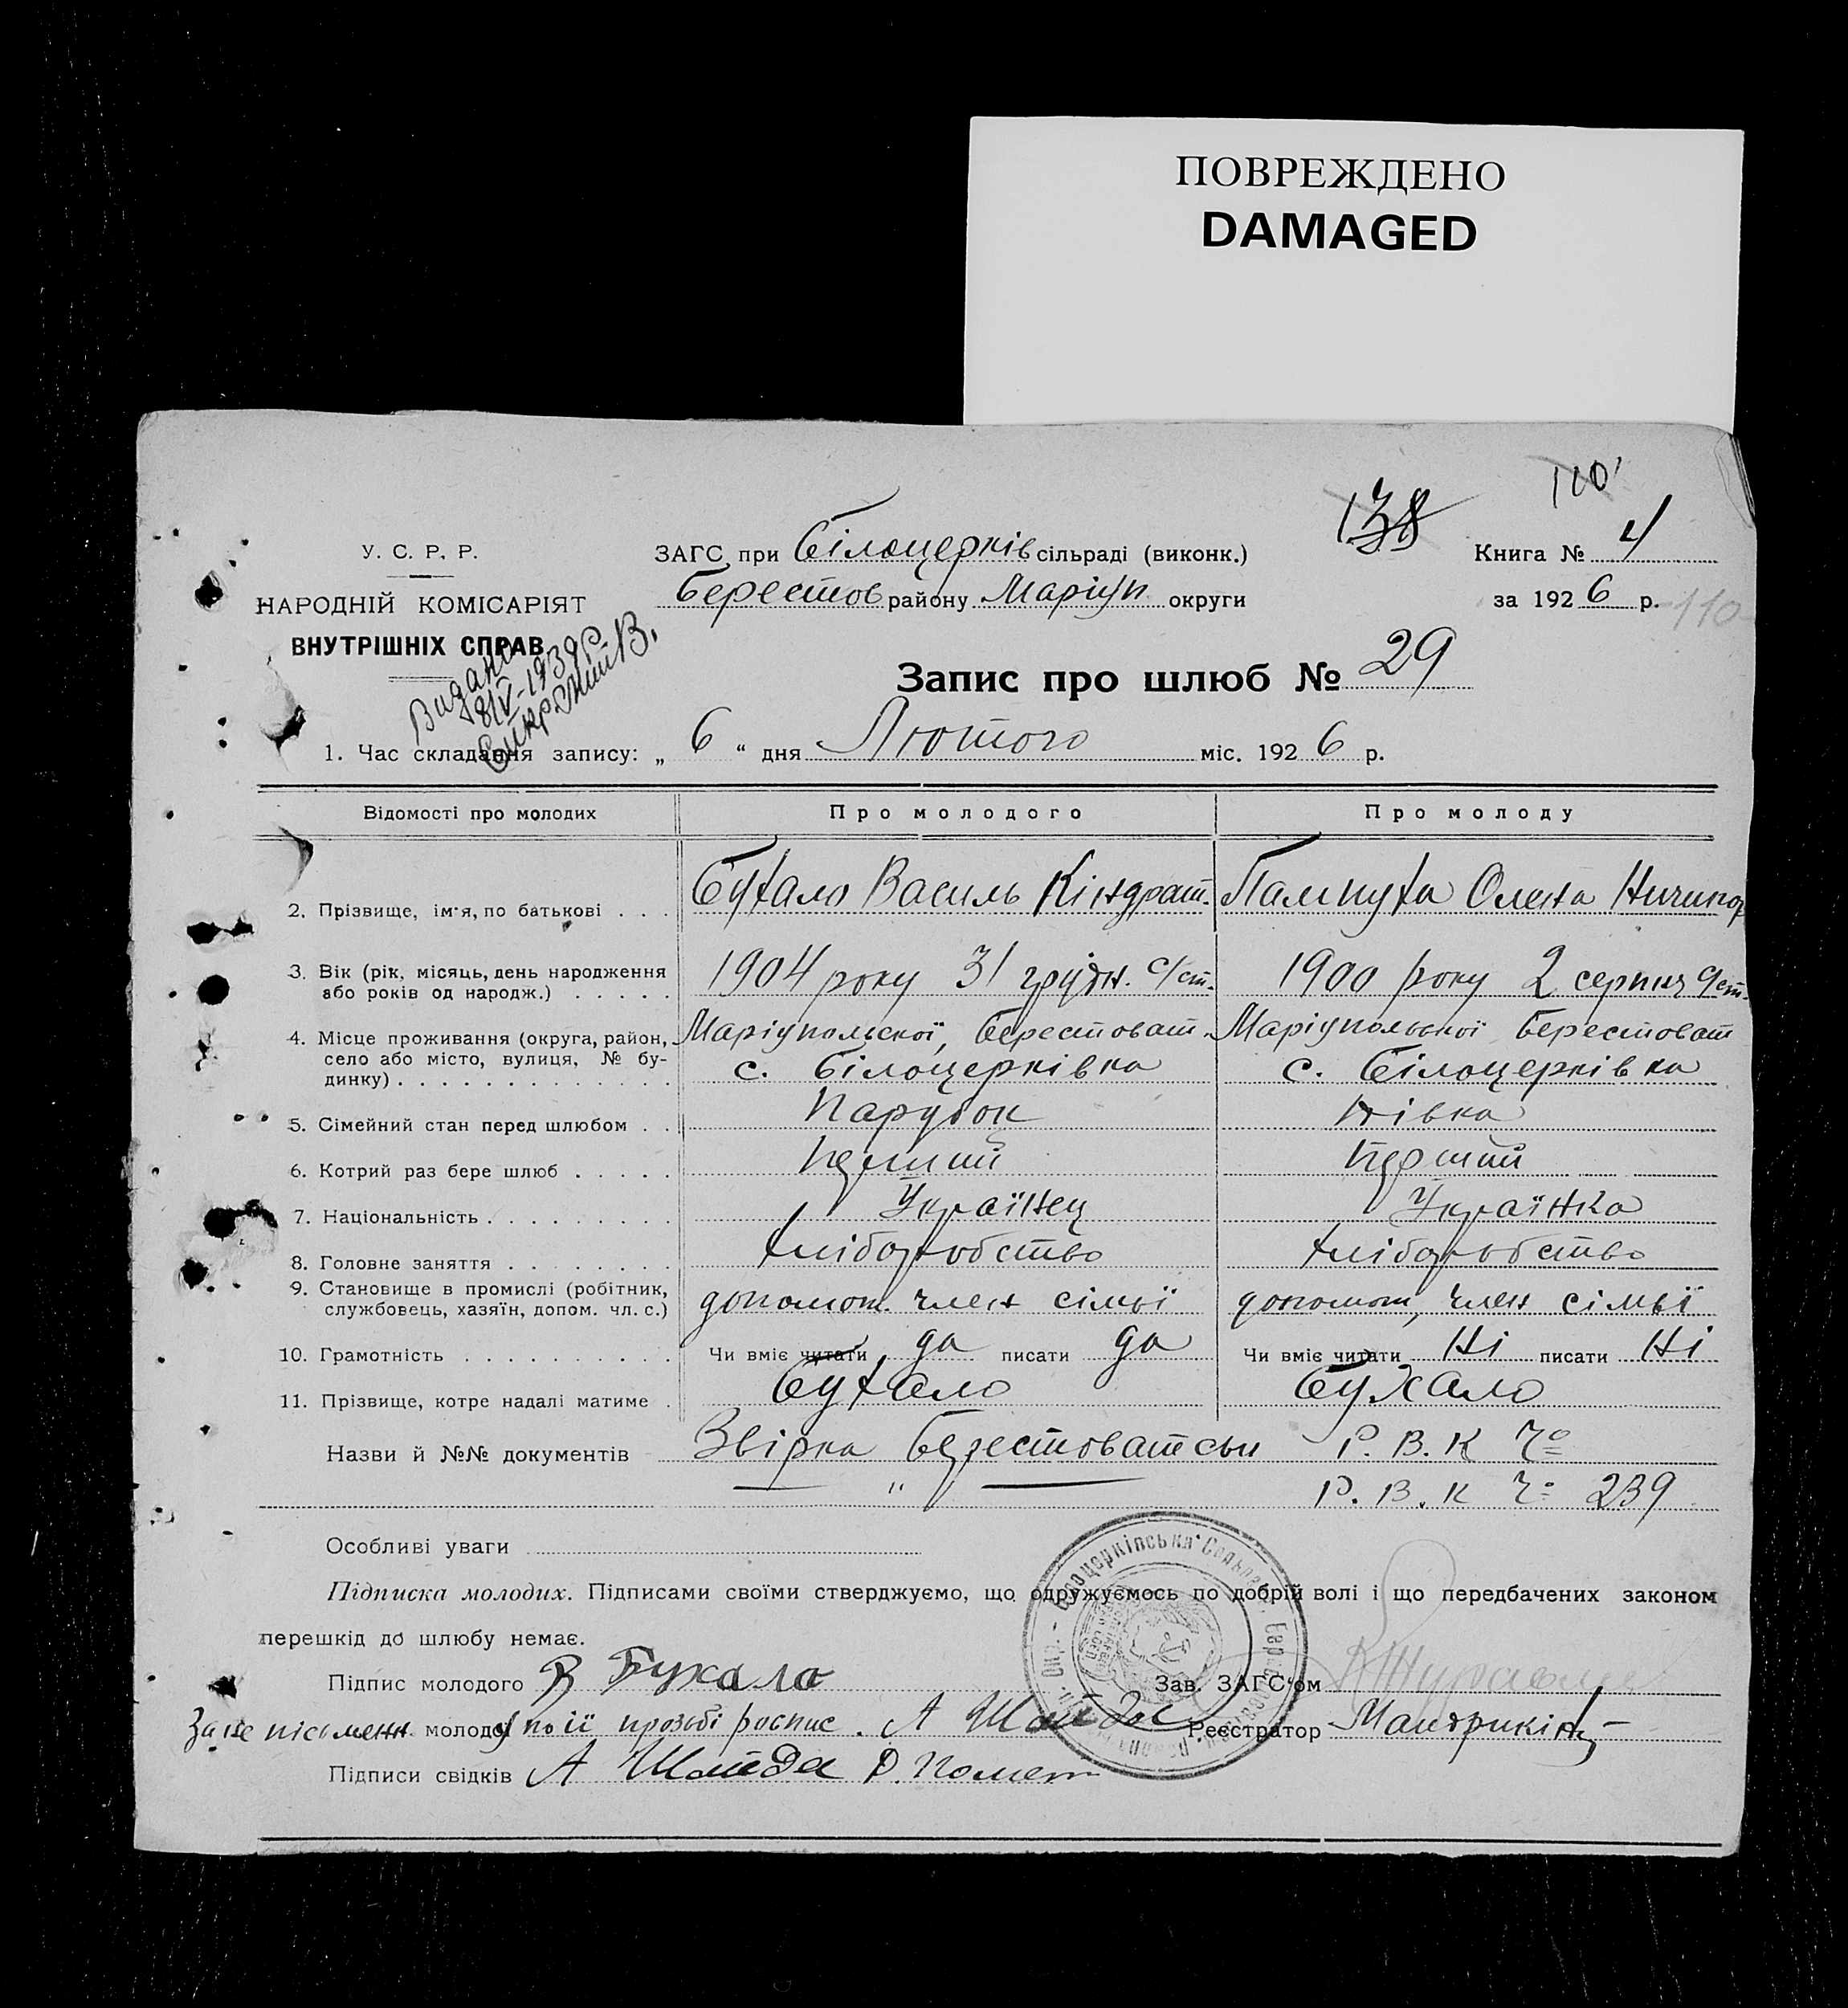 ПОВРЕЖДЕНО
DAMAGED
110
138
У. С. Р. Р.
ЗАГС при Білоцерків сільраді (виконк.)
Книга № 4
НАРОДНІЙ КОМІСАРІЯТ
Берестов району Маріуп округи
за 1926 р.
110
ВНУТРІШНІХ СПРАВ
Видано
Запис про шлюб № 29
1. Час складання запису: „ 6 “ дня Лютого міс. 1926 р.
Відомості про молодих
Про молодого
Про молоду
2. Прізвище, ім'я, по батькові . . .
Бухало Василь Кіндрат.
Пампуха Олена Ничипор
3. Вік (рік, місяць, день народження
або років од народж.) . . . . .
1904 року 31 грудн. с/ст.
1900 року 2 серпня с/ст.
4. Місце проживання (округа, район,
село або місто, вулиця, № бу-
динку) . . . . . . . . . . . . .
Маріупольскої, Берестоват.
с. Білоцерківка
Маріупольської Берестоват
с. Білоцерківка
5. Сімейний стан перед шлюбом . .
Парубок
Дівка
6. Котрий раз бере шлюб . . . . .
Перший
Перший
7. Національність . . . . . . . . .
Українец
Українка
8. Головне заняття . . . . . . . .
Хліборобство
Хліборобство
9. Становище в промислі (робітник,
службовець, хазяїн, допом. чл. с.)
допомот. член сімьї
допомот, член сімьї
10. Грамотність . . . . . . . . . .
Чи вміє читати да писати да
Чи вміє читати Ні писати Ні
11. Прізвище, котре надалі матиме .
Бухало
Бухало
Назви й №№ документів Звірка Берестоватськ Р. В. К Ч⁰
" Р. В. К Ч⁰ 239
Особливі уваги
Підписка молодих. Підписами своїми стверджуємо, що одружуємось по добрій волі і що передбачених законом
перешкід до шлюбу немає.
Підпис молодого В Бухало
Зав. ЗАГС'ом
За не пісьменн молодої по її прозьбі роспис. А Шайда
Реєстратор
Підписи свідків А Шайда